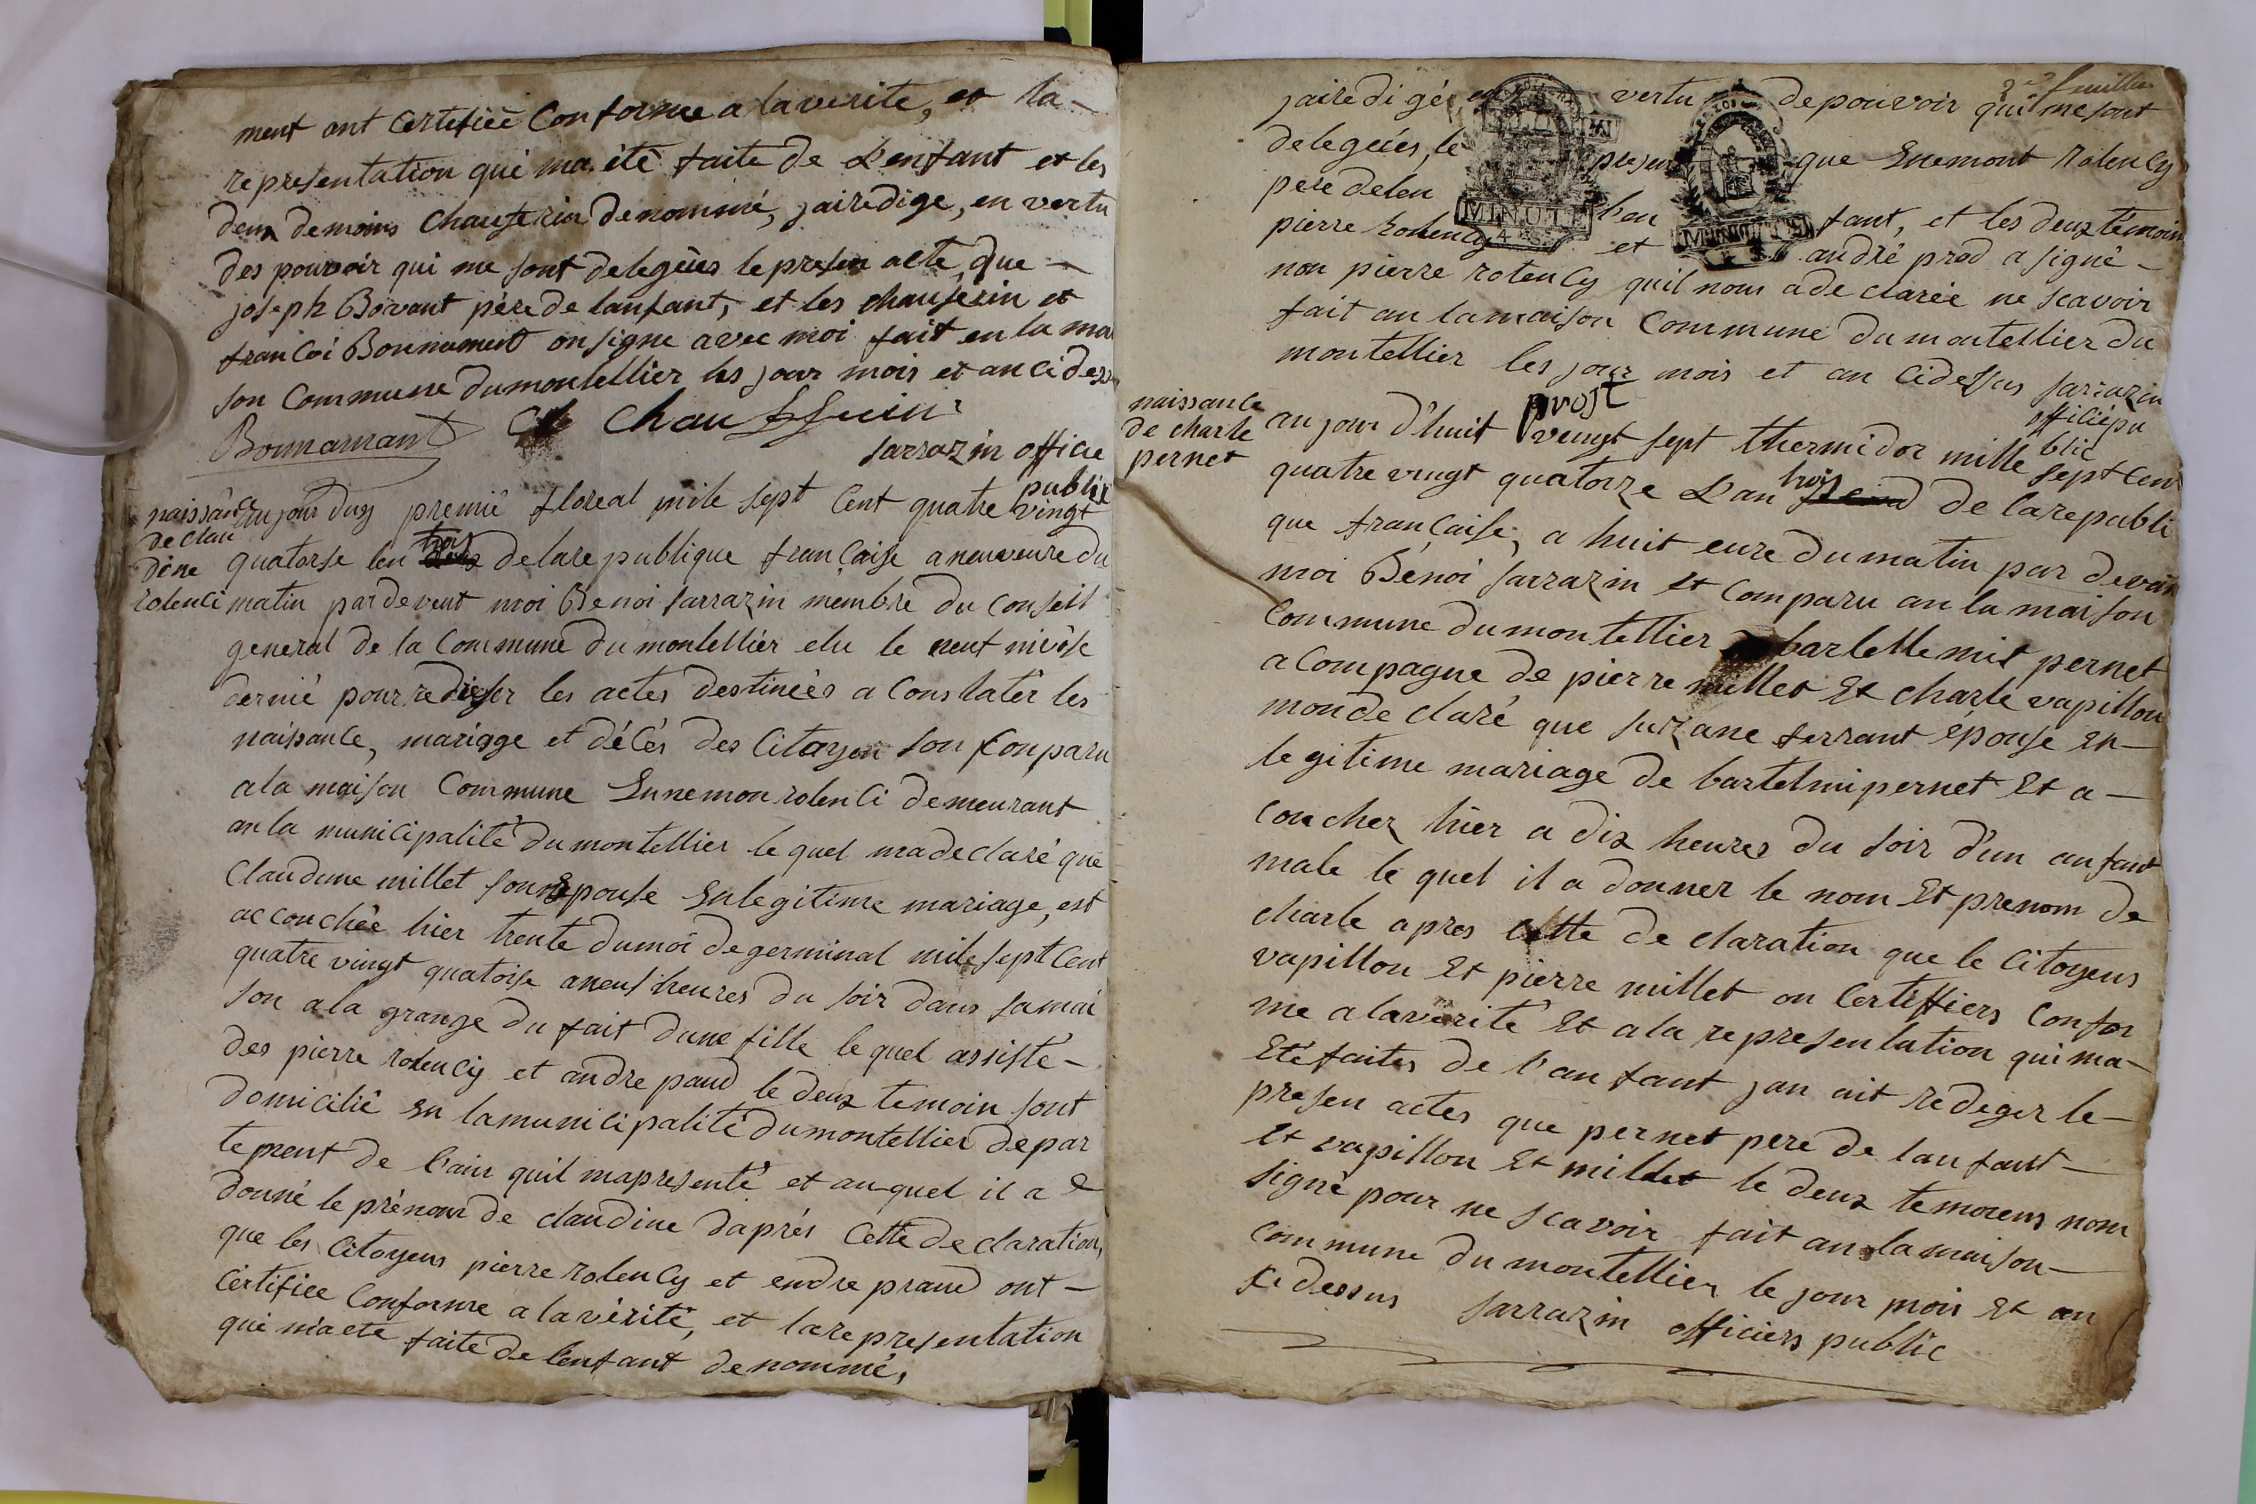 ment ont certifiée Conforme a la verite, et la-
representation qui ma été faite de L'enfant et les
deux demoins Chauserin denommé, jai redige, en vertu
des pouvoir qui me sont deleguèes le presen acte que-
joseph Bovant père de lanfant, et les chauserin et
francoi Bonnament on signe avec moi fait en la ma
son Commune du montellier les jour mois et an ci dess
Bonnamant Cl ChauSSuin
sarrazin officie
public
naissance
de clau
dine
rolenci
aujour duy premié floreal mile sept Cent quatre vingt
quatorse len trois de la republique française a neuveure du
matin par devent moi Benoi sarrazin membre du Conseil
general de la Commune du montellier elu le neut nivôse
dernié pour rediger les actes destinées a Constatér les
naissance, mariage et décés des Citoyen son Conparu
a la maison Commune Ennemon rolenci demeurant
an la municipalité du montellier le quel ma declaré que
Claudine millet sonn Epouse En legitime mariage, est
accouchée hier trente du moi de germinal mile sept Cent
quatre vingt quatoise a neuf heures du soir dans sa mai
son a la grange du fait dune fille le quel assisté-
des pierre rolency et andre paud le deux temoin sont
domicilié en la municipalité du montellier depar
tement de l'ain quil ma presenté et au quel il a
donné le prénom de claudine daprés Cette declaration,
que les Citoyens pierre rolency et endre praud ont-
Certifiee Conforme a la vérité, et la representation
qui m'a ete faite de l'enfant denommé,
3me feuillet
jai redigée, en vertu de pouvoir qui me sont
deleguées, le presen que Enemont Rolency
pere de len l'en fant, et les deux témoin
pierre Rolency et andré prod a signé-
MINUTE
4 s.
non pierre rolency quil nous a declarée ne scavoir
fait an la maison Commune du montellier du
montellier les jour mois et an cidessus sarrazin
officié pu
blic
prost
naissance
de charle
pernet
au jour d'huit vengt sept thermidor mille sept cen
quatre vingt quatorze L'an trois de la republi
que française, a huit eure du matin par devan
moi Bénoi sarrazin Et Comparu an la maison
Commune du montellier barlellemit pernet
a Compagne de pierre millet Et charle vapillon
mon de claré que suzane ferrant épouse En-
legitime mariage de bartelmi pernet Et a-
coucher hier a dix heures du soir d'un anfant
male le quel il a donner le nom Et prenom de
charle apres Cette declaration que le Citoyens
vapillon Et pierre millet on Certiffiers Confor
me a la verité Et a la representation qui ma-
Eté faites de l'anfant jan ait rédeger le-
presen actes que pernet pere de lanfant-
Et vapillon Et millet le deux temoiens nom
signé pour ne scavoir fait an la maison-
Commune du montellier le jour mois Et an
Ci dessus sarrazin officiers public